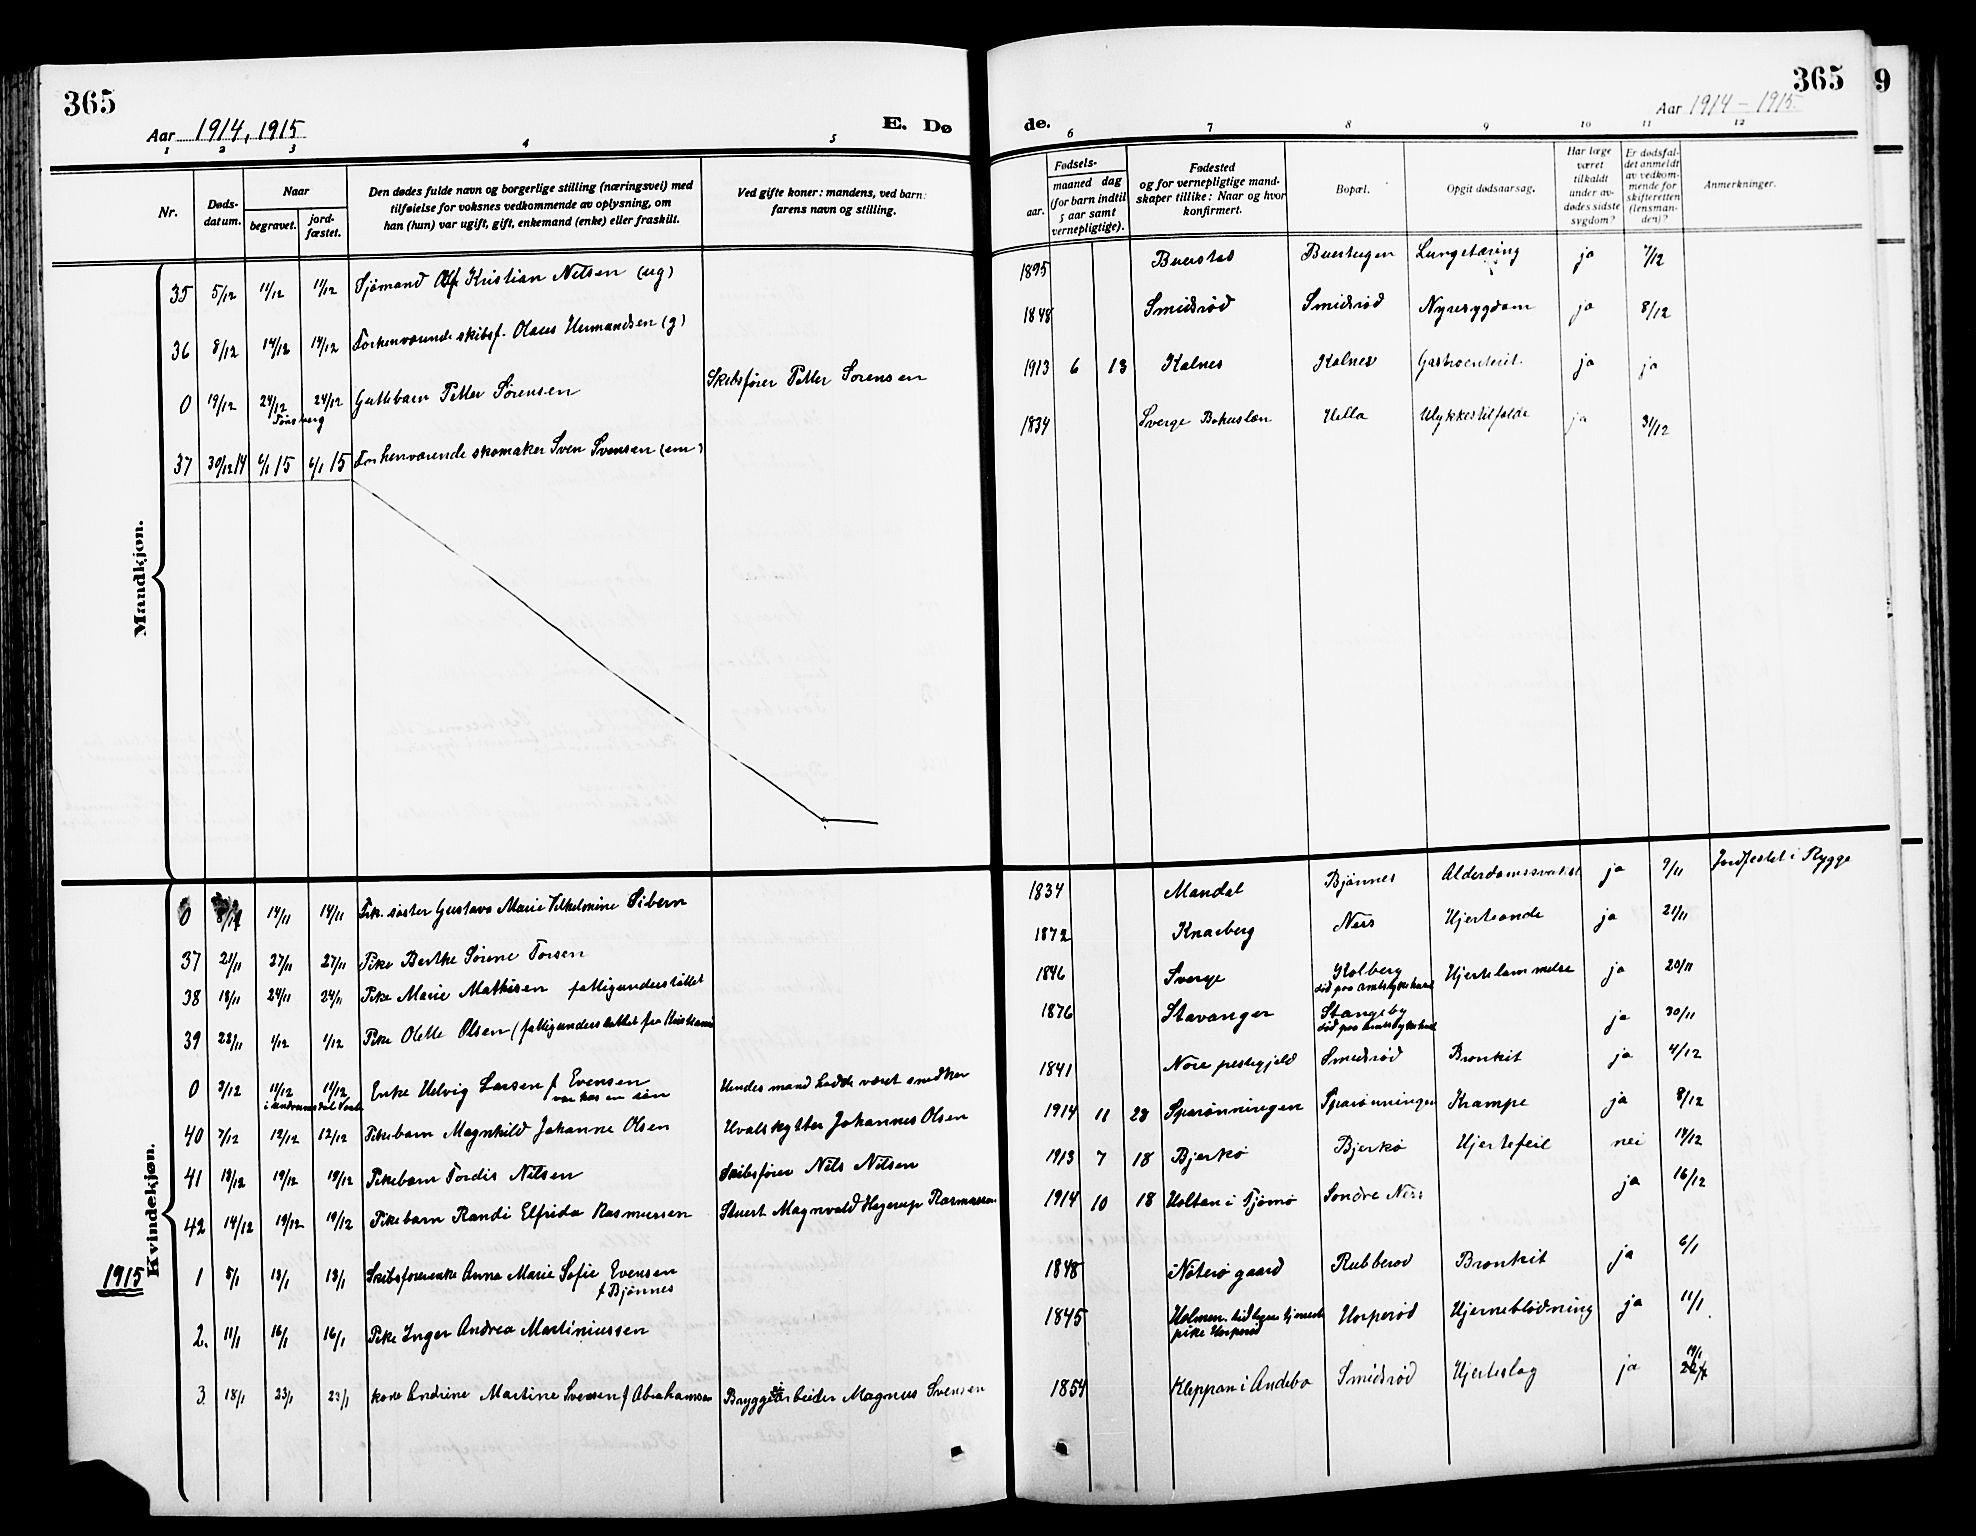 365
Aar 1914, 1915
E. Dø
1 2 3 4 5
Nr.
Døds-
datum.
Naar
begravet.
jord-
fæstet.
Den dødes fulde navn og borgerlige stilling (næringsvei) med
tilføielse for voksnes vedkommende av oplysning, om
han (hun) var ugift, gift, enkemand (enke) eller fraskilt.
Ved gifte koner: mandens, ved barn:
farens navn og stilling.
Mandkjøn.
35 5/12 11/12 11/12 Sjømand Olf Kristian Nilsen (ug)
36 8/12 14/12 14/12 Forhenværende skibsf. Olaus Hermandsen (g)
0 19/12 24/12 24/12 Guttebarn Petter Sørensen Skibsfører Petter Sørensen
Tønsberg
37 30/12 14 6/1 15 6/1 15 Forhenværende skomaker Sven Svensen (em)
Kvindekjøn.
0 14/11 14/11 søster Gustava Marie Vilhelmine Sibern
37 21/11 27/11 27/11 Pike Berthe Sørine Torsen
38 18/11 24/11 24/11 Pike Marie Mathisen fattigunderstøttet
39 28/11 1/12 1/12 Pike Olette Olsen (fattigunderstøttet fra Kristiania
0 3/12 11/12 11/12 Enke Helvig Larsen f. Evensen Hendes mand hadde været snedker
var hos en søn
40 7/12 12/12 12/12 Pikebarn Magnhild Johanne Olsen Hvalskytter Johannes Olsen
41 13/12 19/12 19/12 Pikebarn Tordis Nilsen Skibsfører Nils Nilsen
42 14/12 19/12 19/12 Pikebarn Randi Elfrida Rasmussen Stuert Magnvald Hagerup Rasmussen
1915
1 5/1 13/1 13/1 Skibsførerenke Anne Marie Sofie Evensen
f Bjønnes
2. 11/1 16/1 16/1 Pike Inger Andrea Martiniussen
3 18/1 23/1 23/1 kone Andrine Martine Svensen f Abrahamsen Bryggearbeider Magnus Svensen
365
9
de.
Aar 1914 – 1915.
6 7 8 9 10 11 12
Fødsels-
aar.
maaned dag
(for barn indtil
5 aar samt
vernepligtige).
Fødested
og for vernepligtige mand-
skaper tillike: Naar og hvor
konfirmert.
Bopæl.
Opgit dødsaarsag.
Har læge
været
tilkaldt
under av-
dødes sidste
sygdom?
Er dødsfal-
det anmeldt
av vedkom-
mende for
skifteretten
(lensman-
den)?
Anmerkninger.
1895 Buerstad Buerstugen Lungetæring ja 7/12
1848 Smidsrød Smidsrød Nyresygdom ja 8/12
1913 6 13 Kalnes Kalnes Gastroenterit. ja ja
1834 Sverge Bohuslen Hella Ulykkestilfælde ja 31/12
1834 Mandal Bjønnes ja 9/11 Jordfestet i Rygge
1872 Knarberg Nes Hjerteonde ja 21/11
1846 Sverge Kolberg Hjertelammelse ja 20/11
død paa amtsykehuset
1876 Stavanger Stangeby ja 30/11
død paa amtsykehuset
1841 Nore prestegjeld Smidsrød Bronkit ja 4/12
1914 11 28 Sparønningen Sparønningen Krampe ja 8/12
1913 7 18 Bjerkø Bjerkø Hjertefeil nei 14/12
1914 10 18 Holtan i Tjømø Søndre Nes ja 16/12
1848 Nøterø gaard Rubberød Bronkit ja 6/1
1845 Holmen. tidligere tjeneste Horperød Hjerneblødning ja 11/1
pike Horperød
1854 Kleppan i Andebo Smidsrød Hjerteslag ja 19/1